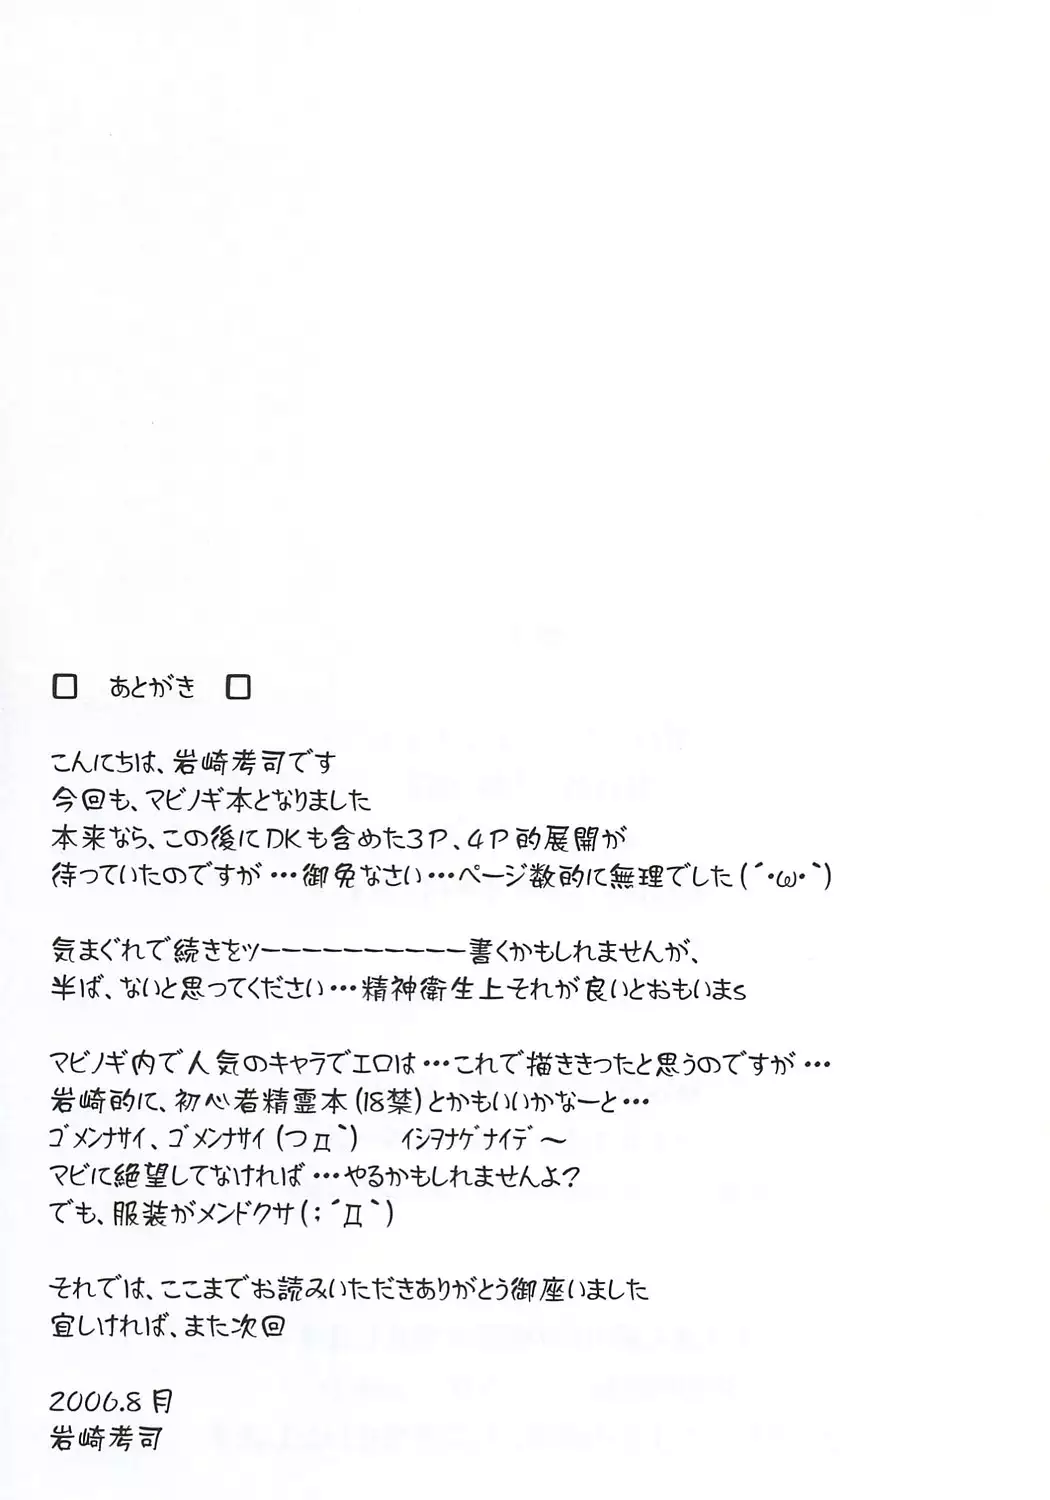 □ あとがき □
こんにちは、岩崎考司です
今回も、マビノギ本となりました
本来なら、この後にDKも含めた3P、4P的展開が
待っていたのですが…御免なさい…ページ数的に無理でした(´・ω・`)
気まぐれで続きをッーーーーーーーーーー書くかもしれませんが、
半ば、ないと思ってください…精神衛生上それが良いとおもいまs
マビノギ内で人気のキャラでエロは…これで描ききったと思うのですが…
岩崎的に、初心者精霊本(18禁)とかもいいかなーと…
ｺﾞﾒﾝﾅｻｲ、ｺﾞﾒﾝﾅｻｲ(つд`) ｲｼｦﾅｹﾞﾅｲﾃﾞ～
マビに絶望してなければ…やるかもしれませんよ?
でも、服装がメンドクサ(;´Д`)
それでは、ここまでお読みいただきありがとう御座いました
宜しければ、また次回
2006.8月
岩崎考司